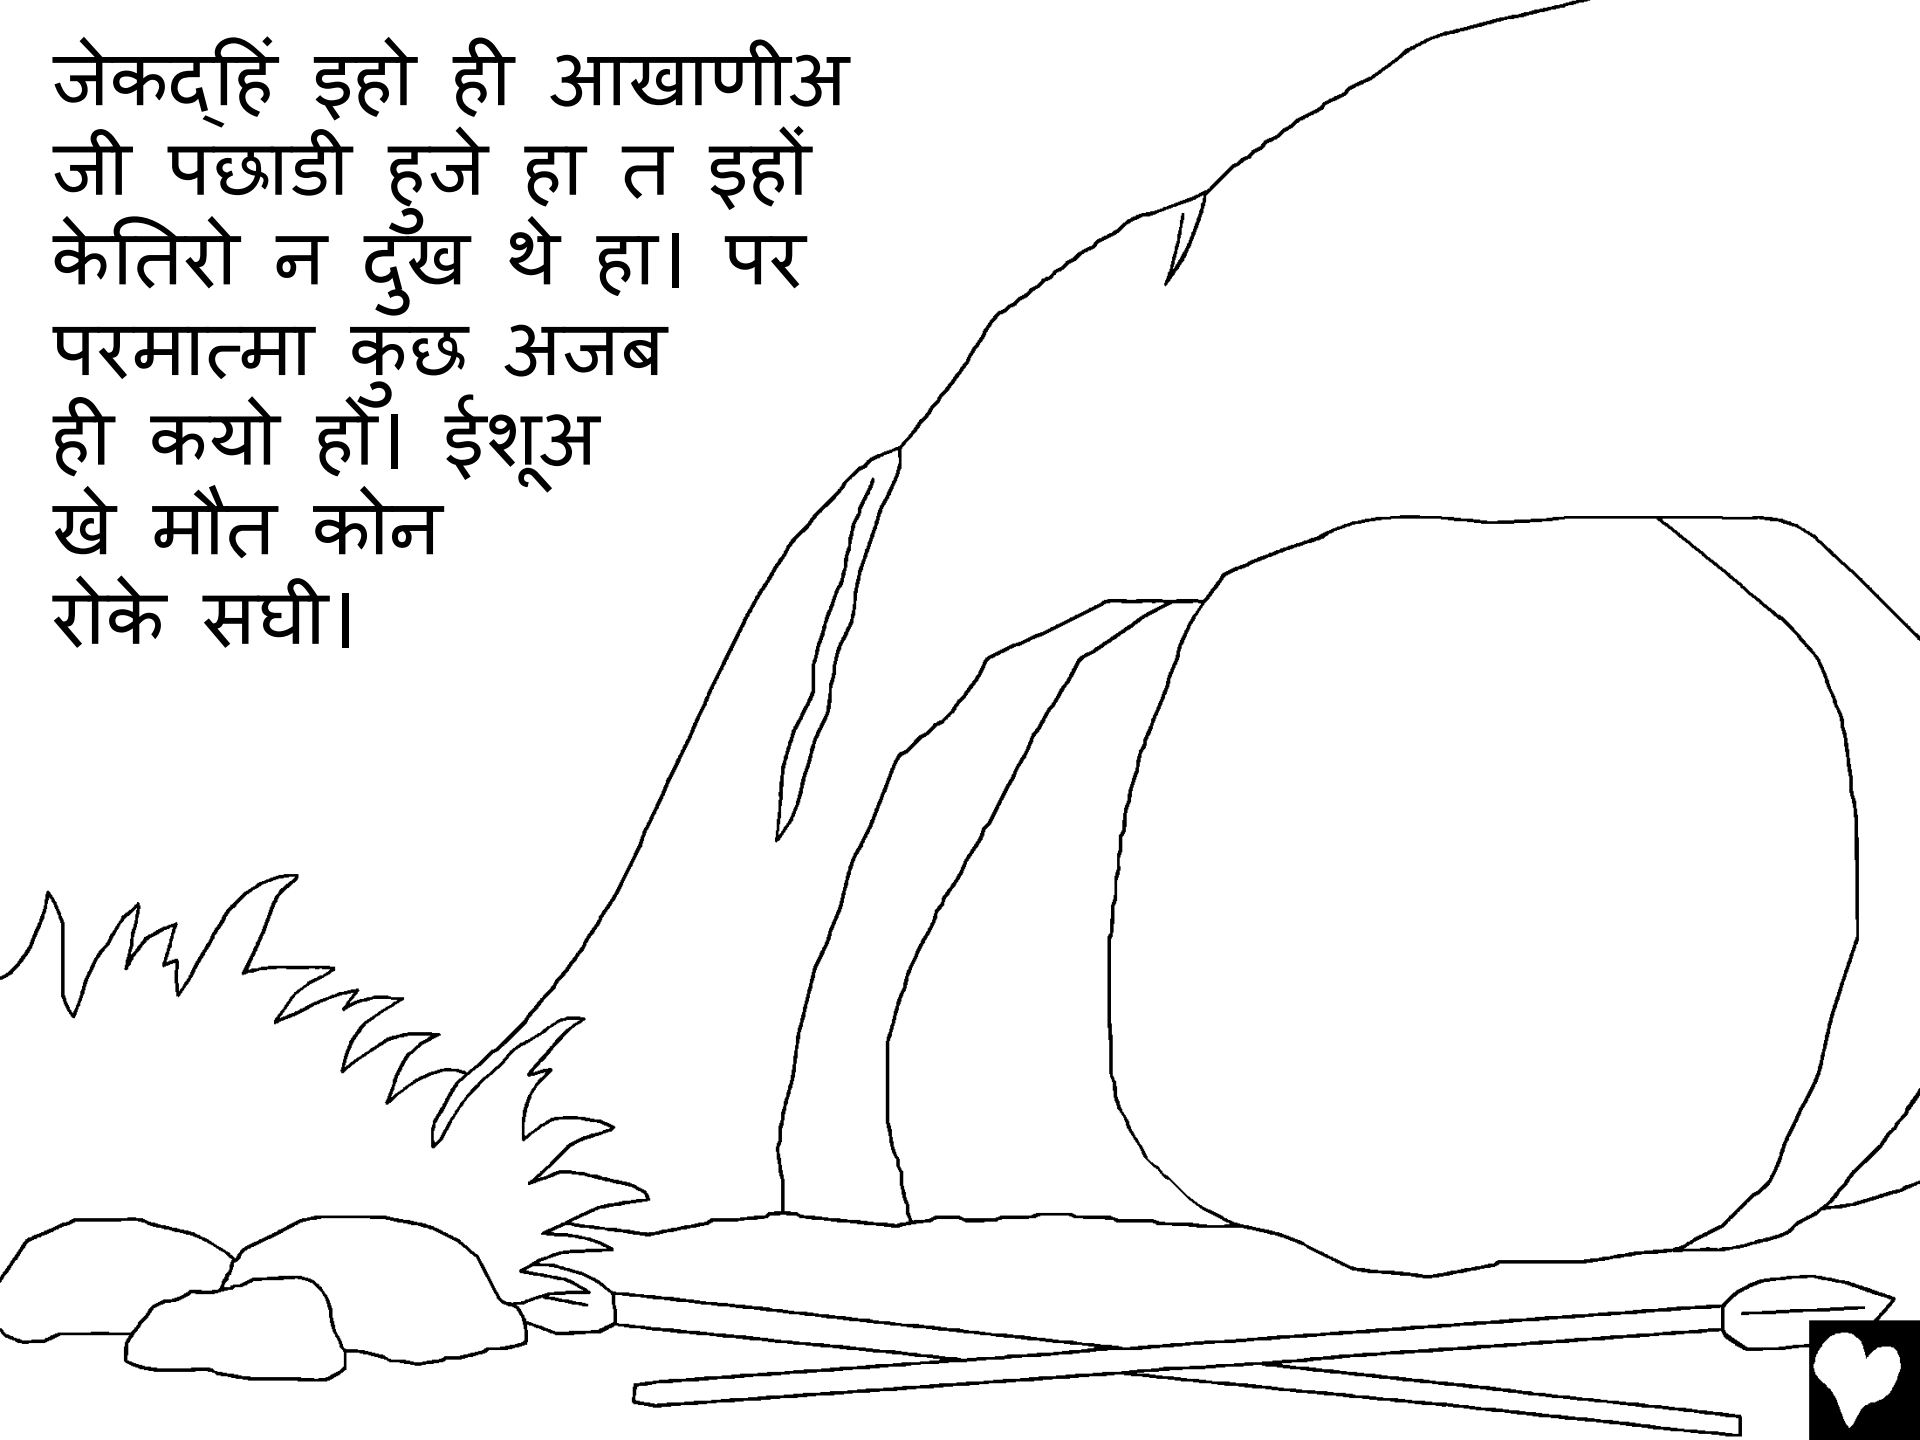 जेकद्हिं इहो ही आखाणीअ
जी पछाडी हुजे हा त इहों
केतिरो न दुख थे हा। पर
परमात्मा कुछ अजब
ही कयो हो। ईशूअ
खे मौत कोन
रोके सघी।